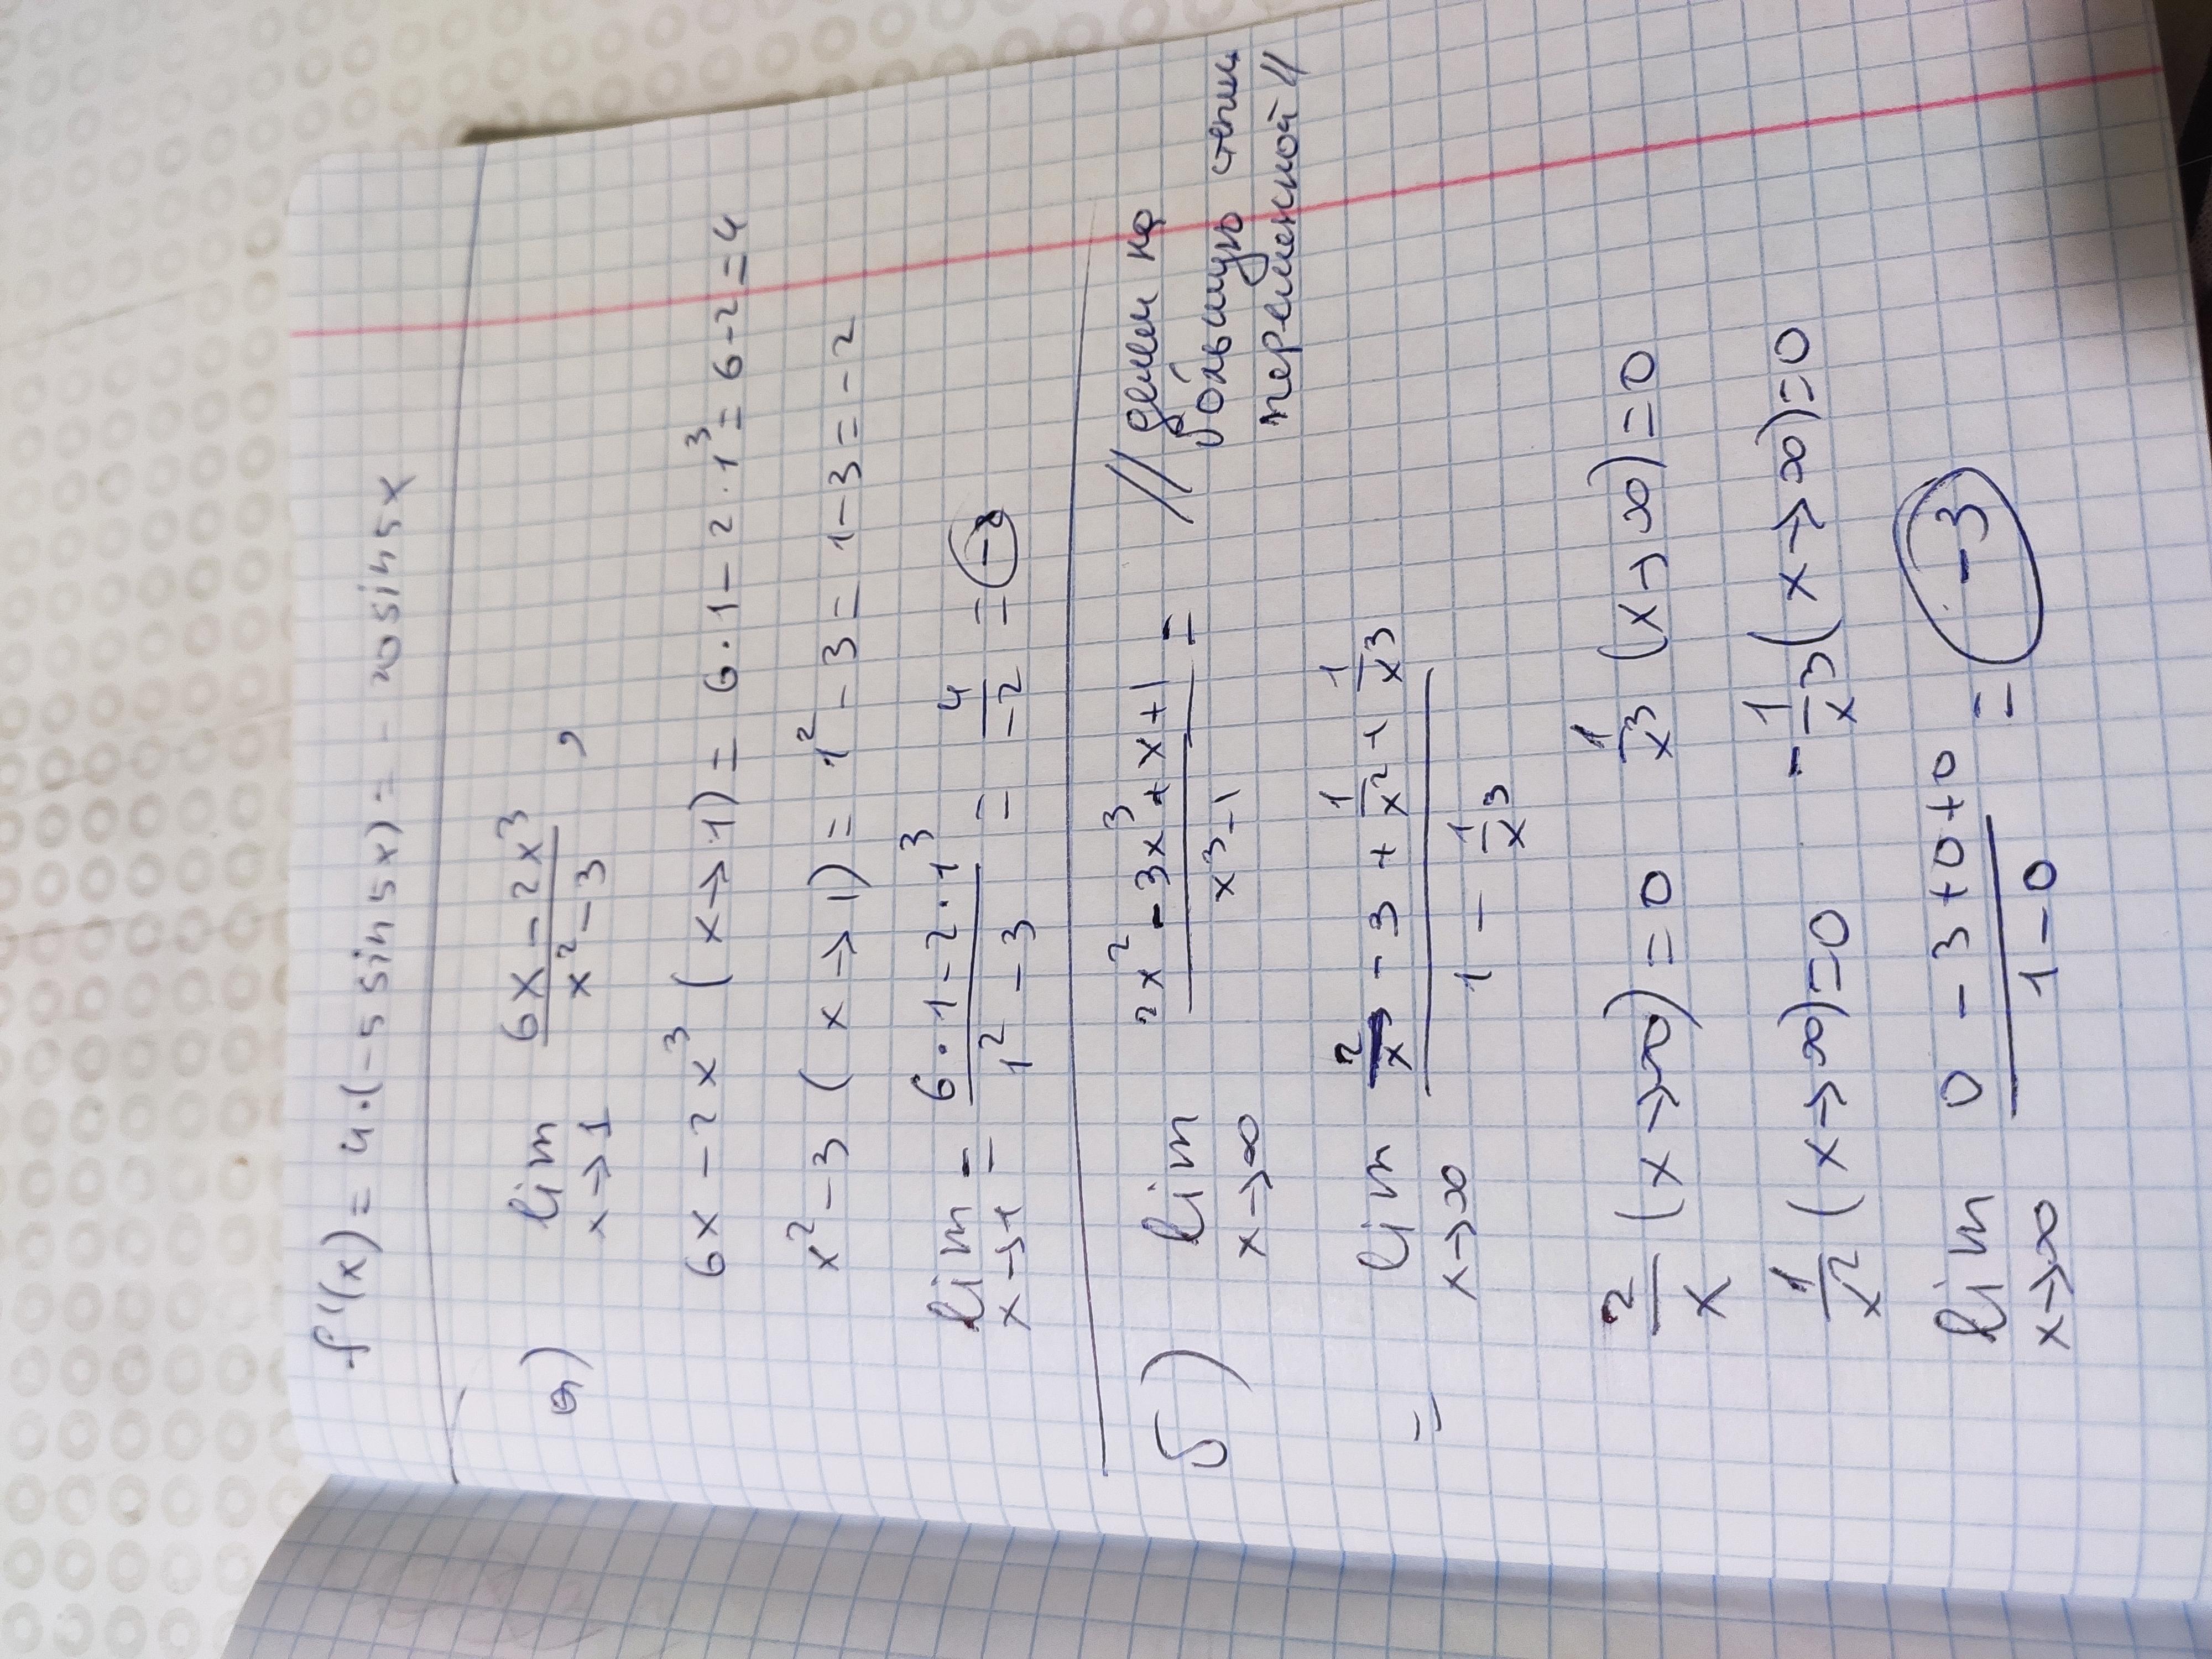 f'(x) = 4·(-5 sin 5x) = - 20 sin 5x
а) lim x→1 (6x - 2x³)/(x² - 3) ,
6x - 2x³ (x→1) = 6·1 - 2·1³ = 6-2 = 4
x² - 3 (x→1) = 1² - 3 = 1-3 = -2
lim x→1 = (6·1 - 2·1³)/(1² - 3) = 4/-2 = -2
б) lim x→∞ (2x² - 3x³ + x + 1)/(x³ - 1) = // делим на
большую степ
переменной //
= lim x→∞ (2/x - 3 + 1/x² + 1/x³)/(1 - 1/x³)
2/x (x→∞) = 0 1/x³ (x→∞) = 0
1/x² (x→∞) = 0 -1/x³ (x→∞) = 0
lim x→∞ (0 - 3 + 0 + 0)/(1 - 0) = -3